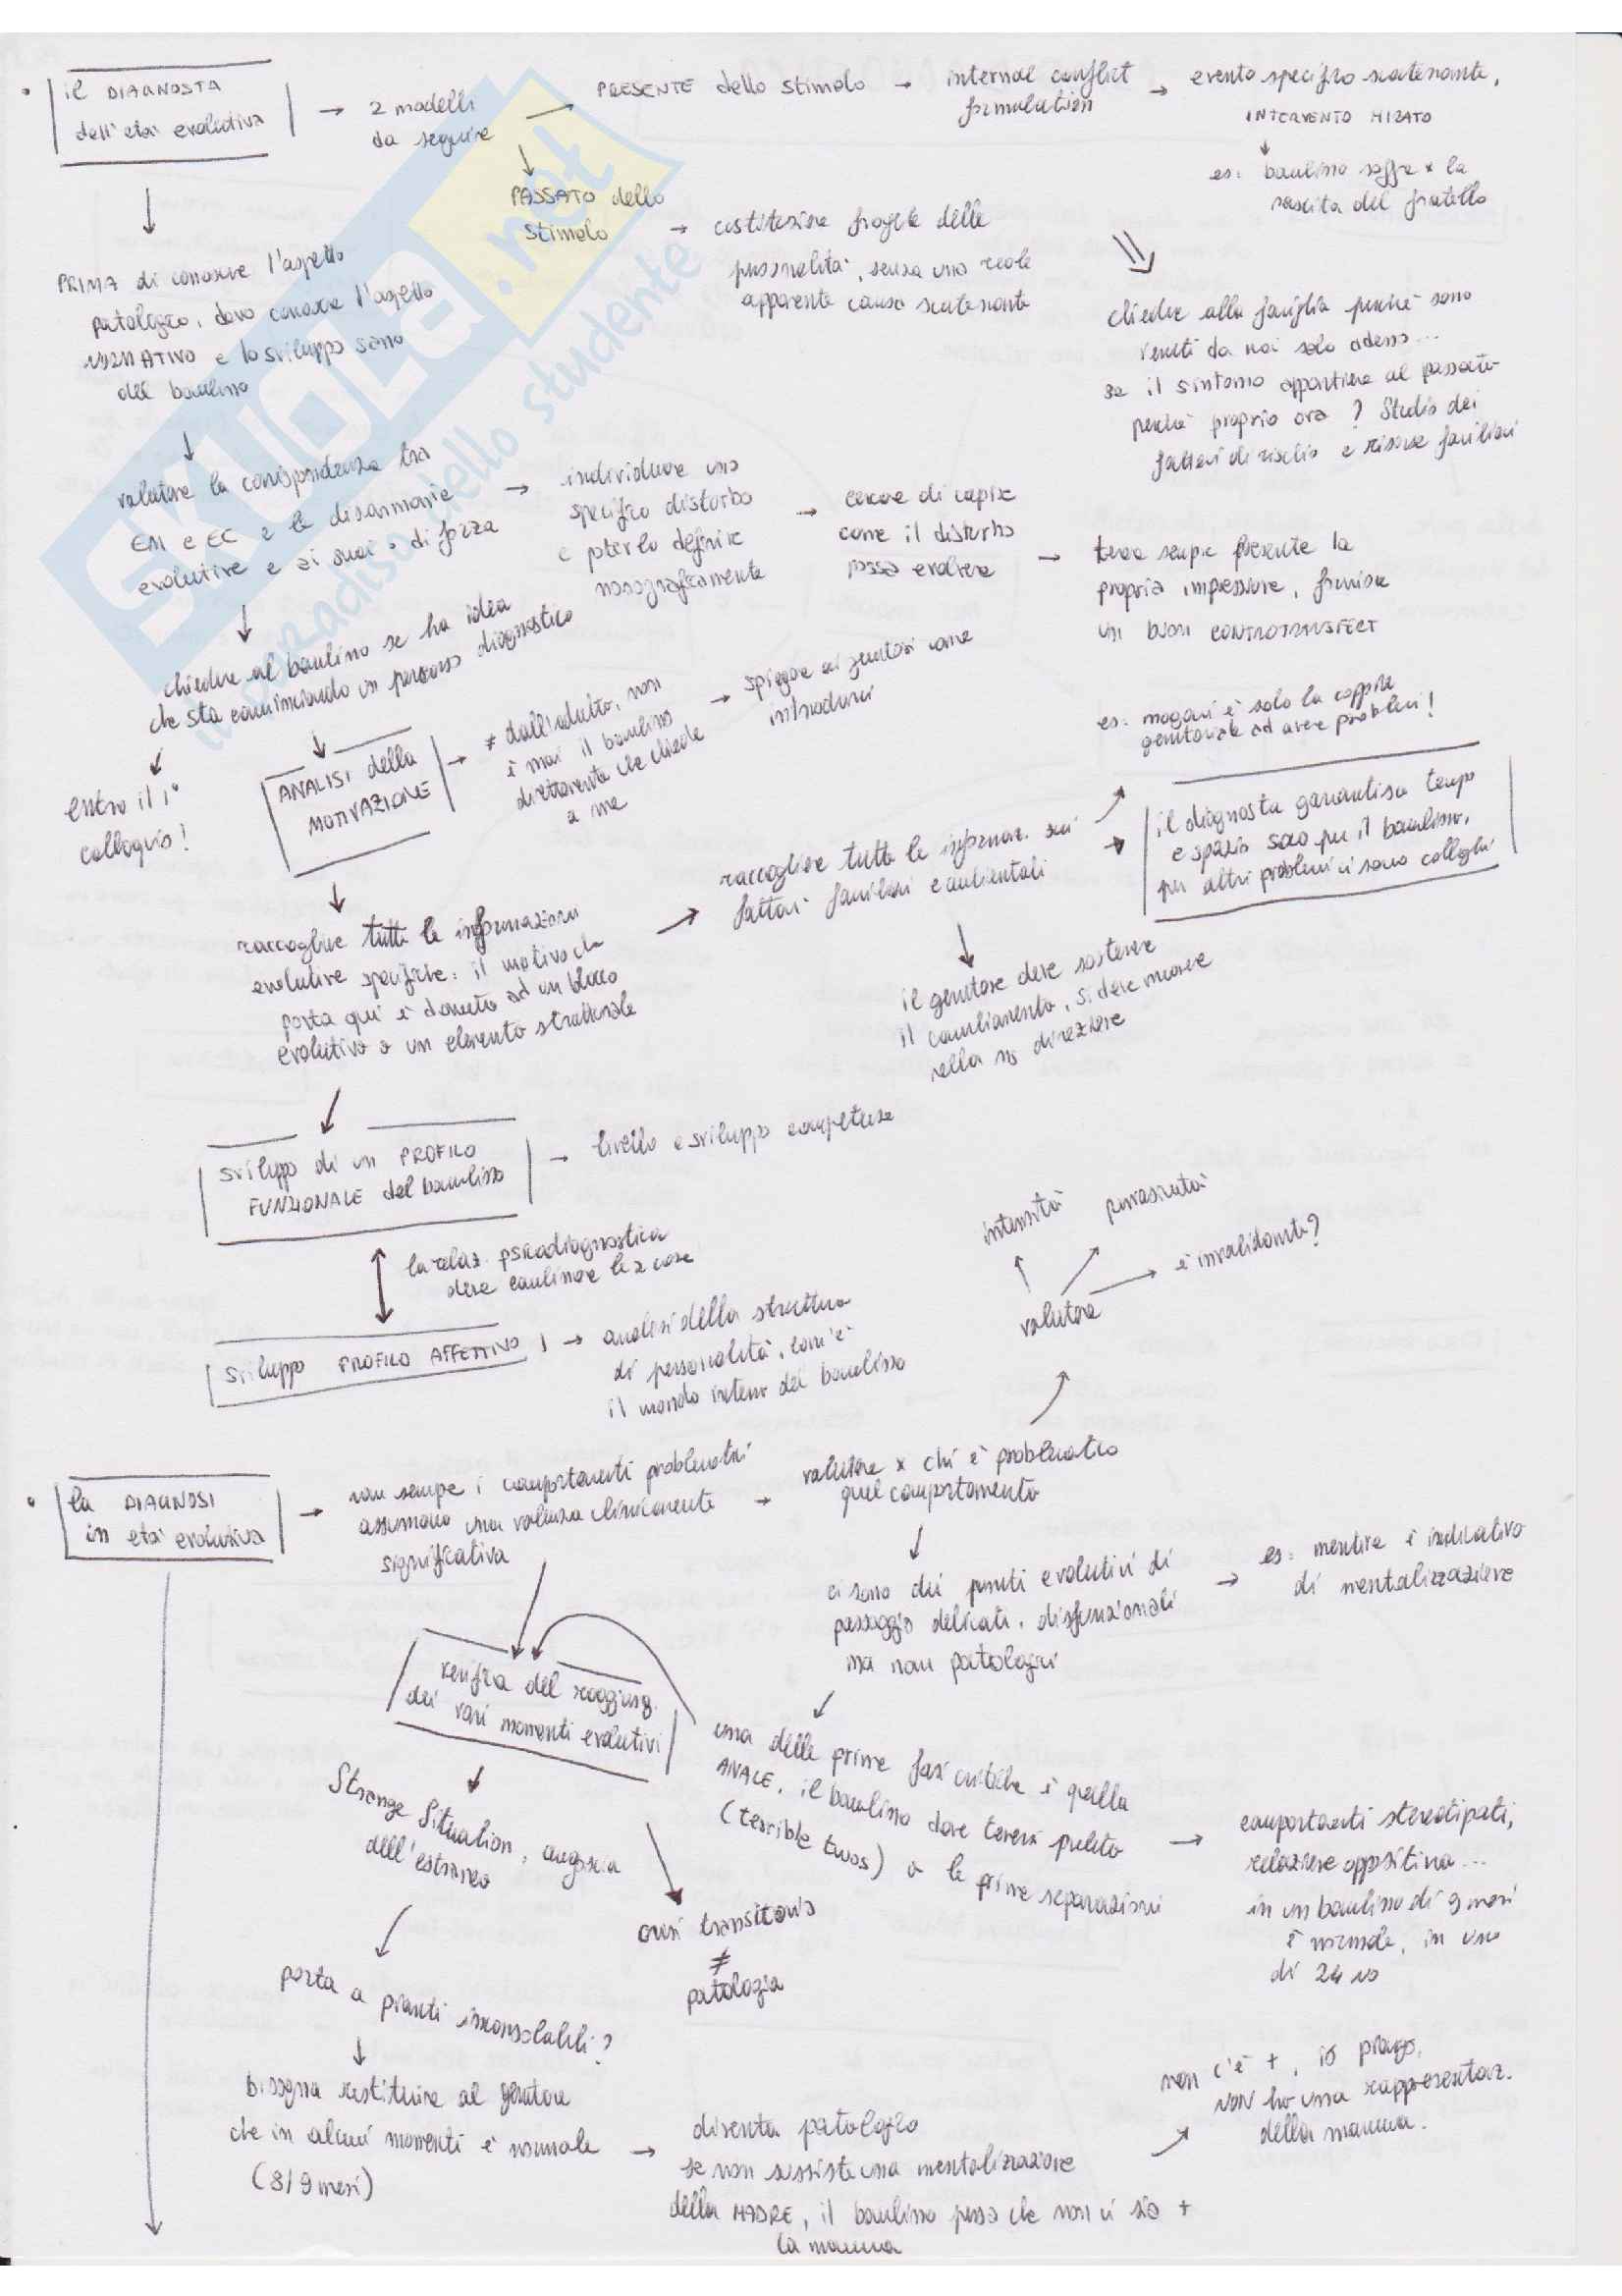 • il DIAGNOSTA
dell'età evolutiva
→ 2 modelli
da seguire
→ PRESENTE dello stimolo → internal conflict
formulation
→ evento specifico scatenante,
INTERVENTO MIRATO
↓
es: bambino soffre x la
nascita del fratello
↓
PASSATO dello
stimolo
→ costituzione fragile della
personalità, senza una reale
apparente causa scatenante
⇒
chiedere alla famiglia perchè sono
venuti da noi solo adesso...
se il sintomo appartiene al passato
perchè proprio ora? Studio dei
fattori di rischio e risorse familiari
↓
PRIMA di conoscere l'aspetto
patologico, devo conoscere l'aspetto
NORMATIVO e lo sviluppo sano
del bambino
↓
valutare la corrispondenza tra
EM e EC e le disarmonie
evolutive e ai suoi • di forza
→ individuare uno
specifico disturbo
e poterlo definire
nosograficamente
→ cercare di capire
come il disturbo
possa evolvere
→ tener sempre presente la
propria impressione, fornisce
un buon CONTROTRANSFERT
↓
chiedere al bambino se ha idea
che sta cominciando un percorso diagnostico
↓
entro il 1°
colloquio!
↓
ANALISI della
MOTIVAZIONE
→ ≠ dall'adulto, non
è mai il bambino
direttamente che chiede
a me
→ spiegare ai genitori come
introdurci
↓
raccogliere tutte le informazioni
evolutive specifiche: il motivo che
porta qui è dovuto ad un blocco
evolutivo o un elemento strutturale
→ raccogliere tutte le informaz. sui
fattori familiari e ambientali
es: magari è solo la coppia
genitoriale ad avere problemi!
→ il diagnosta garantisce tempo
e spazio solo per il bambino,
per altri problemi ci sono colleghi
↓
il genitore deve sostenere
il cambiamento, si deve muovere
nella ns direzione
↓
sviluppo di un PROFILO
FUNZIONALE del bambino
→ livello e sviluppo competenze
↕
la relaz. psicodiagnostica
deve combinare le 2 cose
sviluppo PROFILO AFFETTIVO
→ analisi della struttura
di personalità, com'è
il mondo interno del bambino
intensità
pervasività
→ è invalidante?
valutare
• la DIAGNOSI
in età evolutiva
→ non sempre i comportamenti problematici
assumono una valenza clinicamente
significativa
→ valutare x chi è problematico
quel comportamento
↓
ci sono dei punti evolutivi di
passaggio delicati, disfunzionali
ma non patologici
→ es: mentire è indicativo
di mentalizzazione
verifica del raggiung.
dei vari momenti evolutivi
↓
una delle prime fasi critiche è quella
ANALE, il bambino deve tenersi pulito
(terrible twos) o le prime separazioni
→ comportamenti stereotipati,
relazione oppositiva...
in un bambino di 9 mesi
è normale, in uno
di 24 no
↓
Strange Situation, angoscia
dell'estraneo
crisi transitoria
≠
patologia
porta a pianti inconsolabili?
↓
bisogna restituire al genitore
che in alcuni momenti è normale
(8/9 mesi)
→ diventa patologico
se non sussiste una mentalizzazione
della MADRE, il bambino pensa che non ci sia +
la mamma
non c'è +, io piango,
NON ho una rappresentaz.
della mamma.
SKUOLa.net
il paradiso dello studente